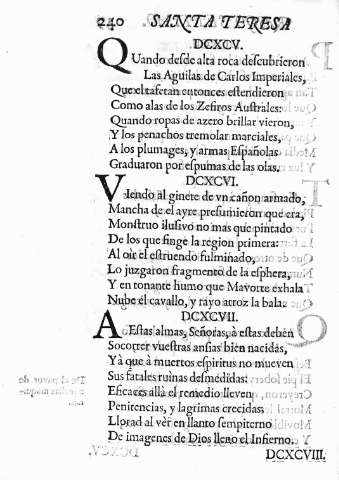 240 SANTA TERESA
DCXCV.
QUando desde alta roca descubrieron
Las Aguilas de Carlos Imperiales,
Que el tafetan entonces estendieron
Como alas de los Zefiros Australes:
Quando ropas de azero brillar vieron,
Y los penachos tremolar marciales,
A los plumages, y armas Españolas
Graduaron por espumas de las olas.
DCXCVI.
VIendo al ginete de vn cañon armado,
Mancha de el ayre presumieron que era,
Monstruo ilusivo no mas que pintado
De los que finge la region primera:
Al oir el estruendo fulminado,
Lo juzgaron fragmento de la esphera,
Y en tonante humo que Mavorte exhala
Nube el cavallo, y rayo atroz la bala.
DCXCVII.
A Estas almas, Señoras, à estas deben
Socorrer vuestras ansias bien nacidas,
Yà que à muertos espiritus no mueven
Sus fatales ruinas desmedidas:
Eficaces allà el remedio lleven
Penitencias, y lagrimas crecidas:
Llorad al vèr en llanto sempiterno
De imagenes de Dios lleno el Infierno.
DCXCVIII.